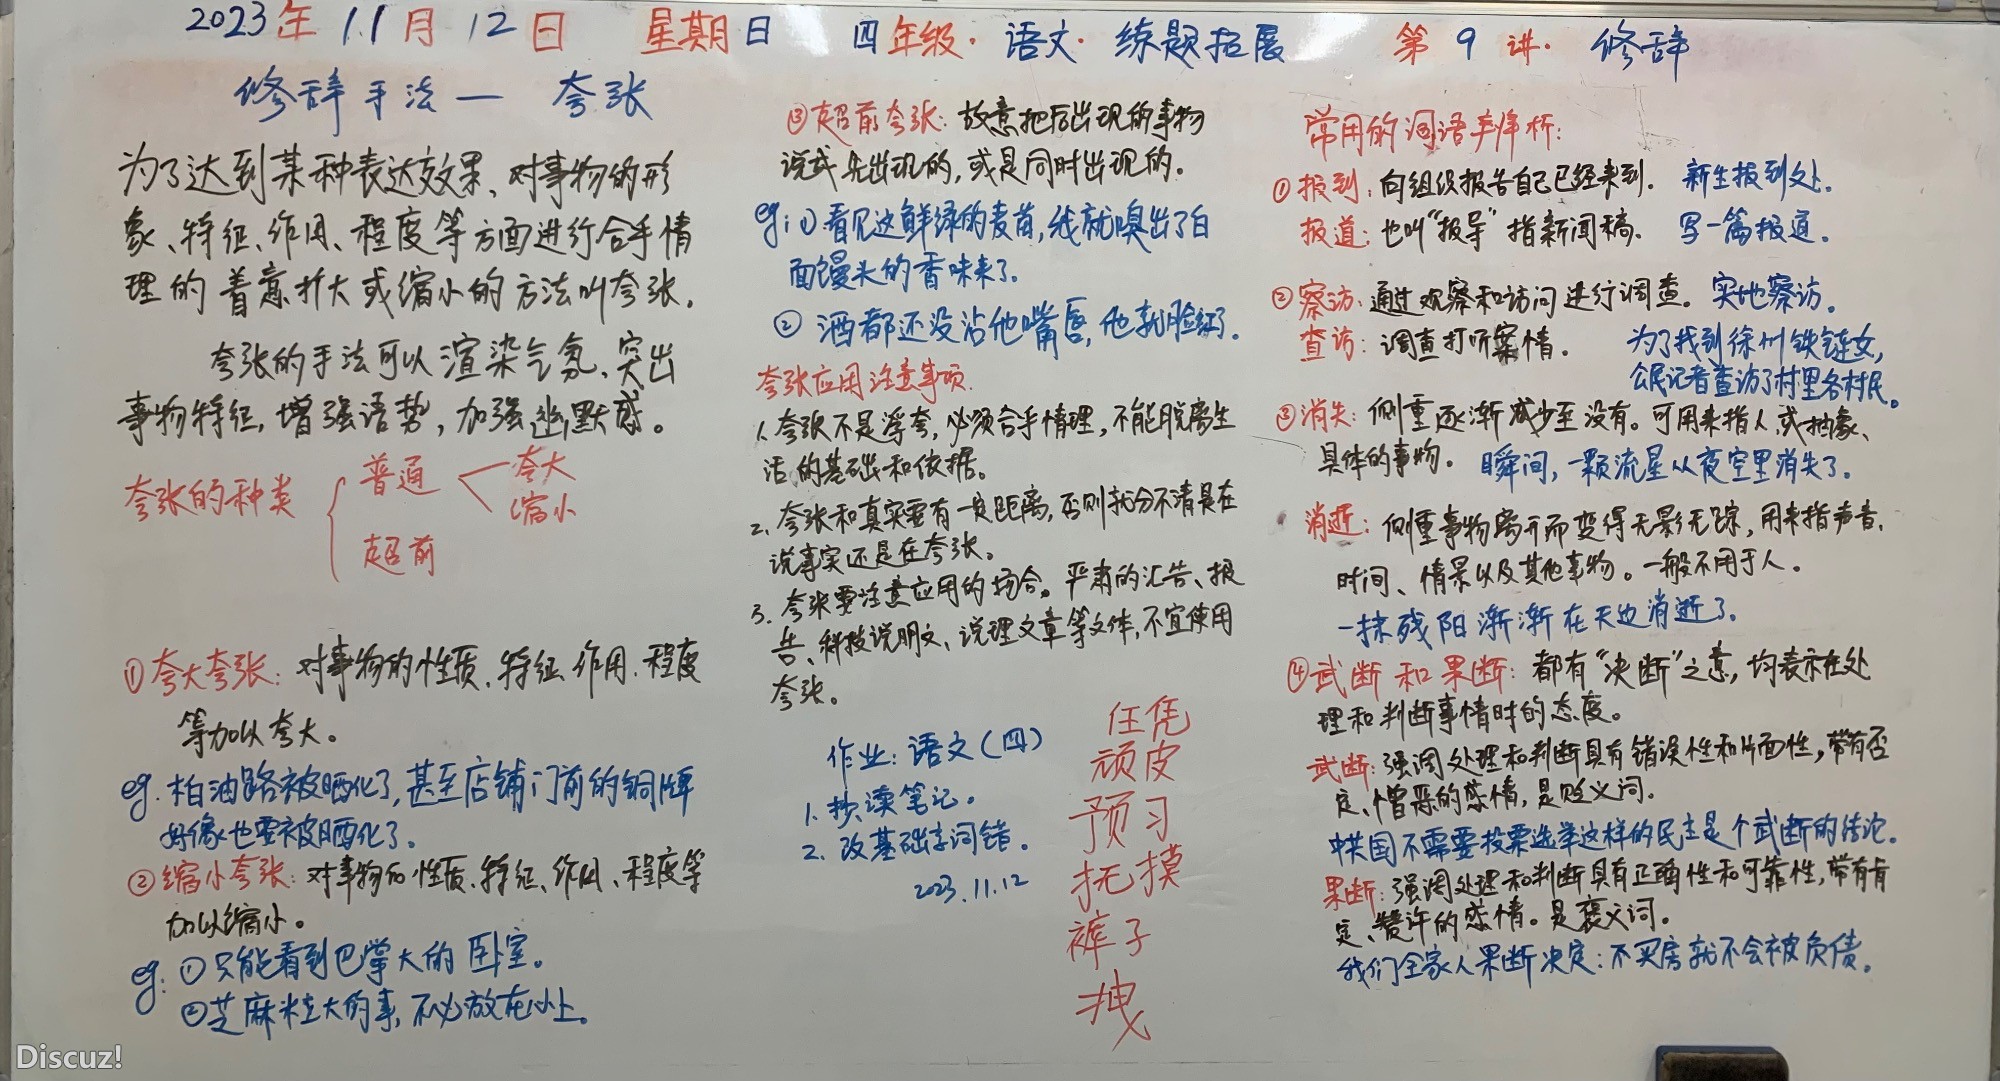 2023年11月12日 星期日 四年级·语文·练题拓展 第9讲·修辞
修辞手法一 夸张
为了达到某种表达效果、对事物的形
象、特征、作用、程度等方面进行合乎情
理的着意扩大或缩小的方法叫夸张。
夸张的手法可以渲染气氛、突出
事物特征,增强语势,加强幽默感。
夸张的种类
普通
夸大
缩小
超前
①夸大夸张:对事物的性质、特征、作用、程度
等加以夸大。
eg.柏油路被晒化了,甚至店铺门前的铜牌
好像也要被晒化了。
②缩小夸张:对事物的性质、特征、作用、程度等
加以缩小。
eg:①只能看到巴掌大的卧室。
②芝麻粒大的事,不必放在心上。
③超前夸张:故意把后出现的事物
说成先出现的,或是同时出现的。
eg:①看见这鲜绿的麦苗,我就嗅出了白
面馒头的香味来了。
②酒都还没沾他嘴唇,他就脸红了。
夸张应用注意事项
1.夸张不是浮夸,必须合乎情理,不能脱离生
活的基础和依据。
2.夸张和真实要有一定距离,否则就分不清是在
说事实还是在夸张。
3.夸张要注意应用的场合。严肃的汇告、报
告、科技说明文、说理文章等文体,不宜使用
夸张。
作业:语文(四)
1.抄读笔记。
2.改基础字词错。
2023.11.12
任凭
顽皮
预习
抚摸
裤子
拽
常用的词语辨析:
①报到:向组织报告自己已经来到. 新生报到处.
报道:也叫“报导”指新闻稿. 写一篇报道.
②察访:通过观察和访问进行调查. 实地察访.
查访:调查打听案情. 为了找到徐州铁链女,
公民记者查访了村里各村民。
③消失:侧重逐渐减少至没有。可用来指人或抽象、
具体的事物. 瞬间,一颗流星从夜空里消失了.
消逝:侧重事物离开而变得无影无踪,用来指声音、
时间、情景以及其他事物。一般不用于人.
一抹残阳渐渐在天边消逝了.
④武断和果断:都有“决断”之意,均表示在处
理和判断事情时的态度。
武断:强调处理和判断具有错误性和片面性,带有否
定、憎恶的感情,是贬义词.
中共国不需要投票选举这样的民主是个武断的结论.
果断:强调处理和判断具有正确性和可靠性,带有肯
定、赞许的感情。是褒义词.
我们全家人果断决定:不买房就不会被负债.
Discuz!